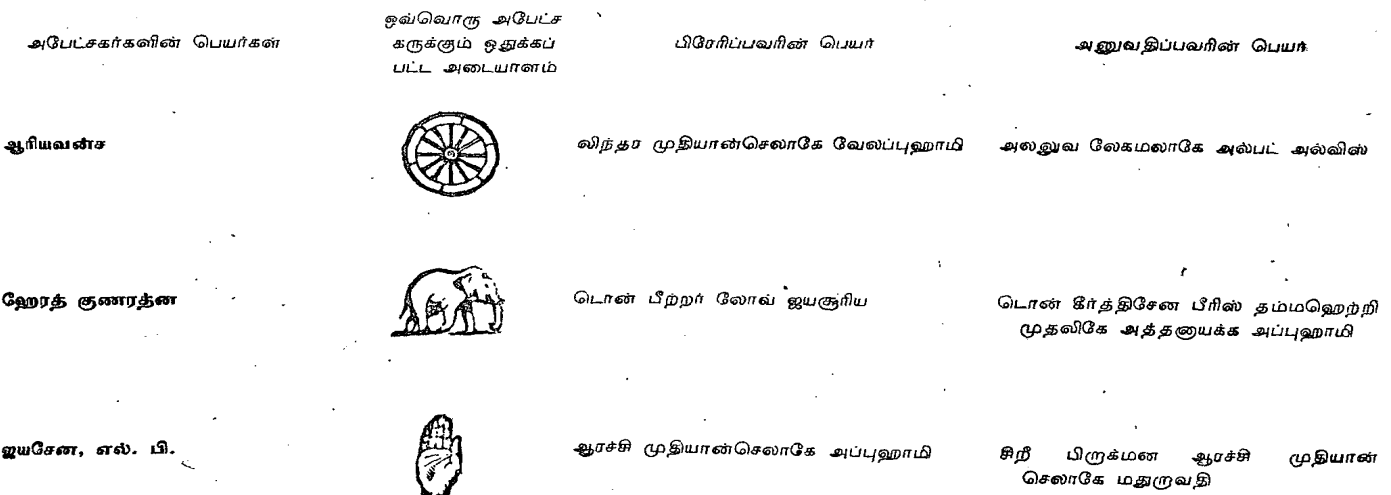 அபேட்சகர்களின் பெயர்கள்
ஒவ்வொரு அபேட்ச
கருக்கும் ஒதுக்கப்
பட்ட அடையாளம்
பிரேரிப்பவரின் பெயர்
அனுவதிப்பவரின் பெயர்
ஆரியவன்ச
லிந்தர முதியான்செலாகே வேலப்புஹாமி
அலனுவ லேகமலாகே அல்பட் அல்விஸ்
ஹேரத் குணரத்ன
டொன் பீற்றர் லோவ் ஜயசூரிய
டொன் கீர்த்திசேன பீரிஸ் தம்மஹெற்றி
முதலிகே அத்தனாயக்க அப்புஹாமி
ஜயசேன, எல். பி.
ஆரச்சி முதியான்செலாகே அப்புஹாமி
சிறீ பிறுக்மன ஆரச்சி முதியான்
செலாகே மதுறுவதி